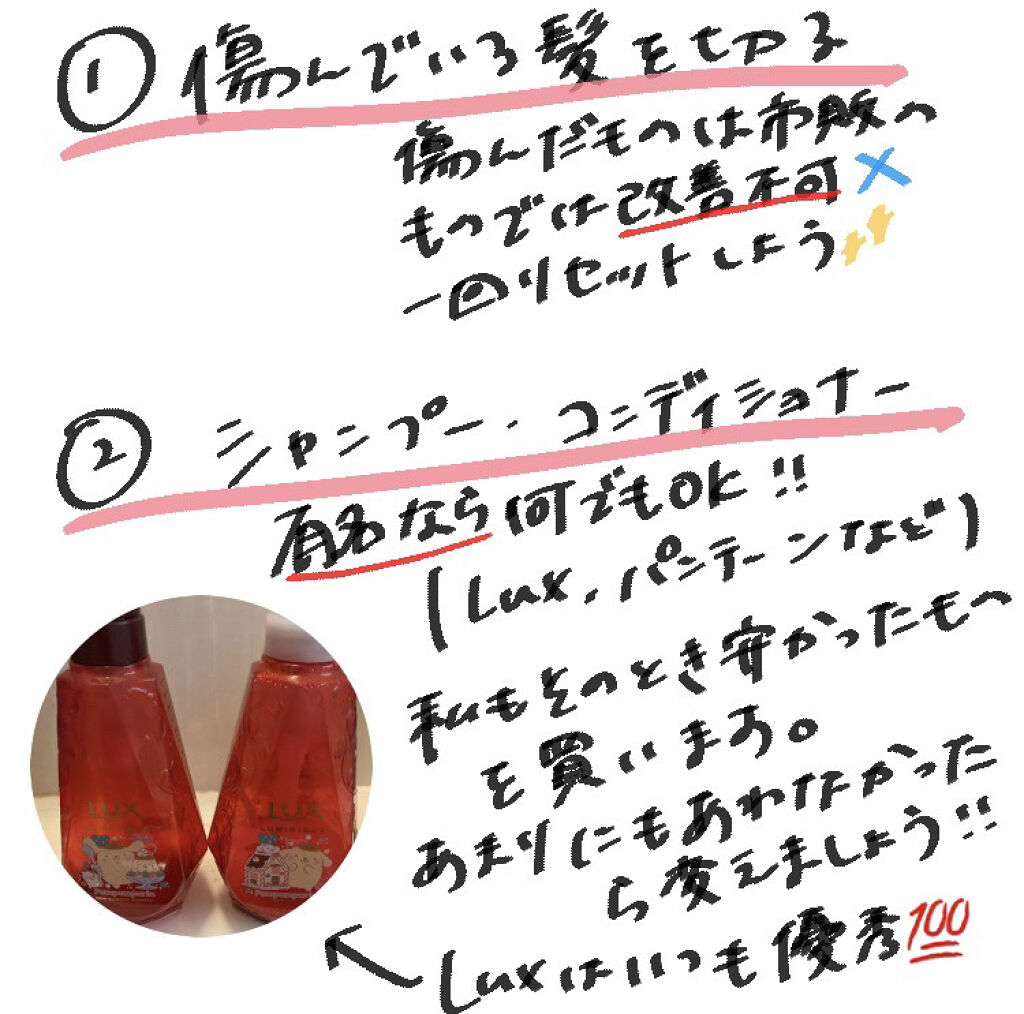 ① 傷んでいる髪を切る
傷んだものは市販の
ものでは改善不可×
一回リセットしよう
② シャンプー・コンディショナー
有名なら何でもOK!!
(Lux.パンテーンなど)
私もそのとき安かったもの
を買います。
あまりにもあわなかった
ら変えましょう!!
Luxはいつも優秀💯
LUX
LUX
LUMINIQUE
Pompompurin
Pompompurin